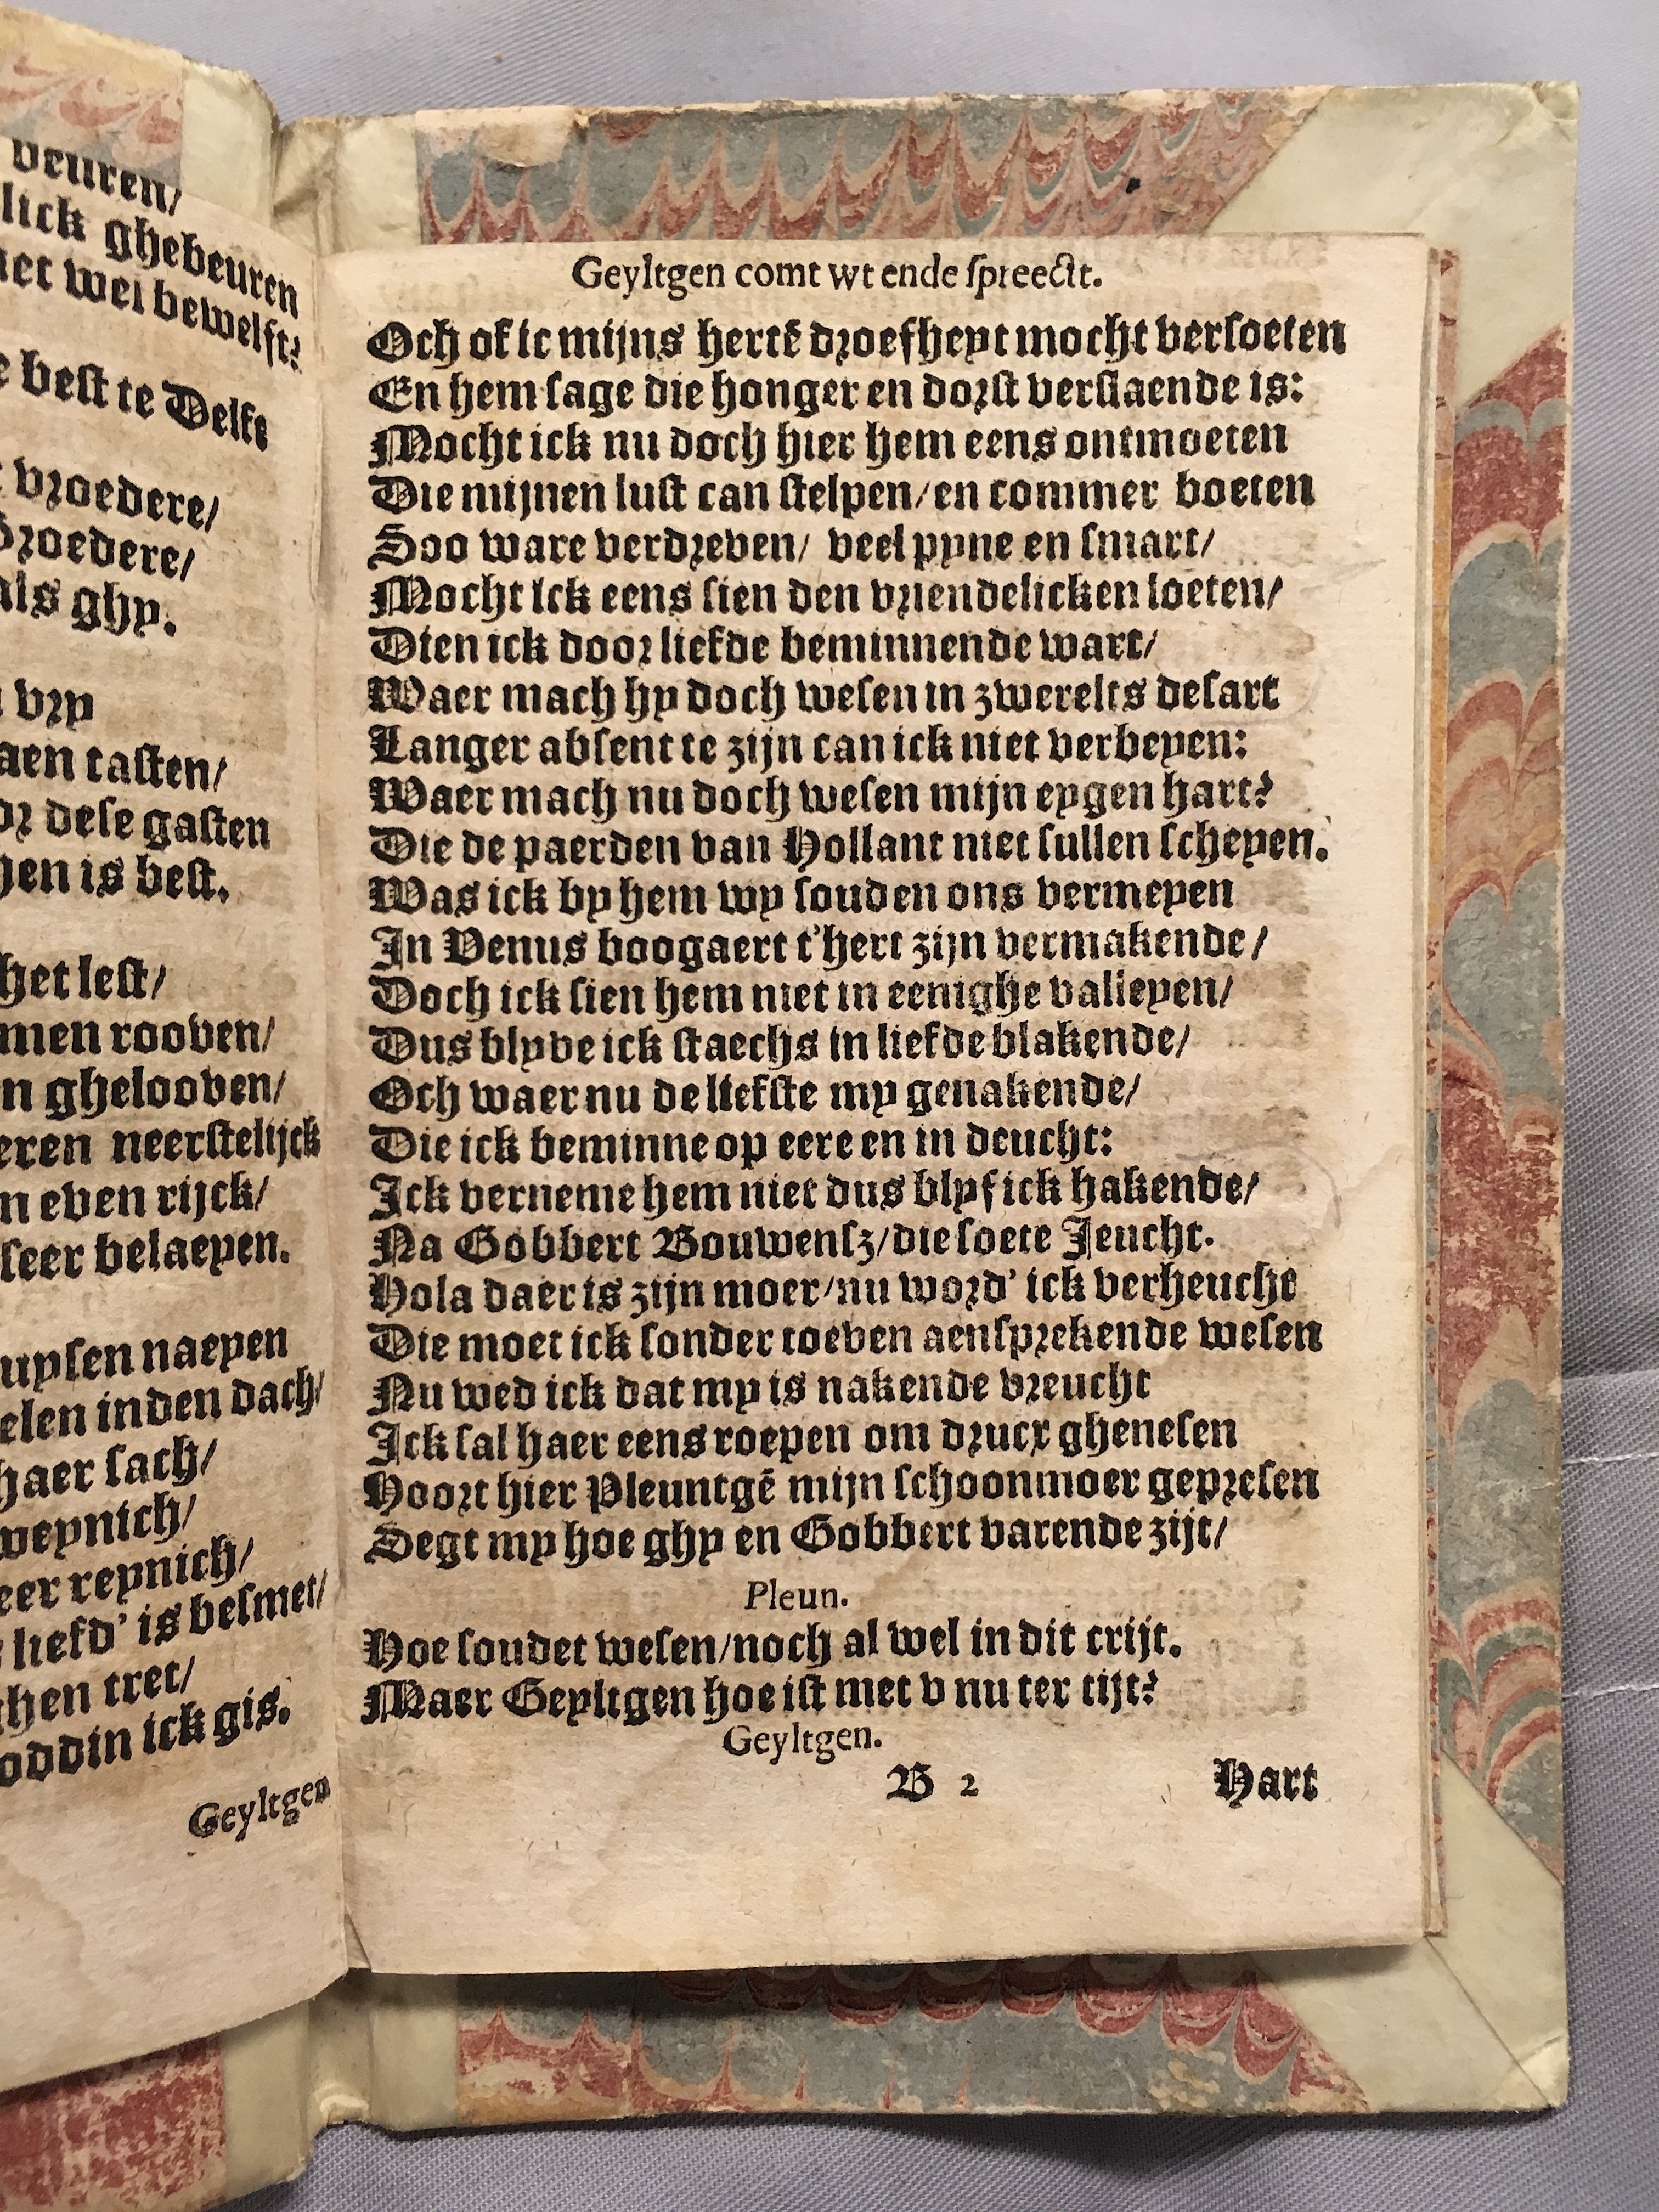 veuren/
lick ghebeuren
wel bewelft?
best te Delft
vroedere/
Broedere/
als ghy.
vry
aen tasten/
dese gasten
is best.
het lest/
men rooven/
ghelooven/
neerstelijck
even rijck/
seer belaeyen.
naeyen
inden dach/
haer sach/
weynich/
reynich/
liefd' is besmet/
tret/
ick gis.
Geyltgen
Geyltgen comt wt ende spreeckt.
Och of ic mijns hertē droefheyt mocht versoeten
En hem sage die honger en dorst verslaende is:
Mocht ick nu doch hier hem eens ontmoeten
Die mijnen lust can stelpen/en commer boeten
Soo ware verdreven/ veel pyne en smart/
Mocht Ick eens sien den vriendelicken loeten/
Dien ick door liefde beminnende wart/
Waer mach hy doch wesen in zwerelts desart
Langer absent te zijn can ick niet verbeyen:
Waer mach nu doch wesen mijn eygen hart?
Die de paerden van Hollant niet sullen scheyen.
Was ick by hem wy souden ons vermeyen
In Venus boogaert t'hert zijn vermakende/
Doch ick sien hem niet in eenighe valieyen/
Dus blyve ick staechs in liefde blakende/
Och waer nu de liefste my genakende/
Die ick beminne op eere en in deucht:
Ick verneme hem niet dus blyf ick hakende/
Na Gobbert Bouwensz/die soete Jeucht.
Hola daer is zijn moer/nu word' ick verheucht
Die moet ick sonder toeven aensprekende wesen
Nu wed ick dat my is nakende vreucht
Ick sal haer eens roepen om drucx ghenesen
Hoort hier Pleuntgē mijn schoonmoer gepresen
Segt my hoe ghy en Gobbert varende zijt/
Pleun.
Hoe soudet wesen/noch al wel in dit crijt.
Maer Geyltgen hoe ist met v nu ter tijt?
Geyltgen.
B 2 Hart